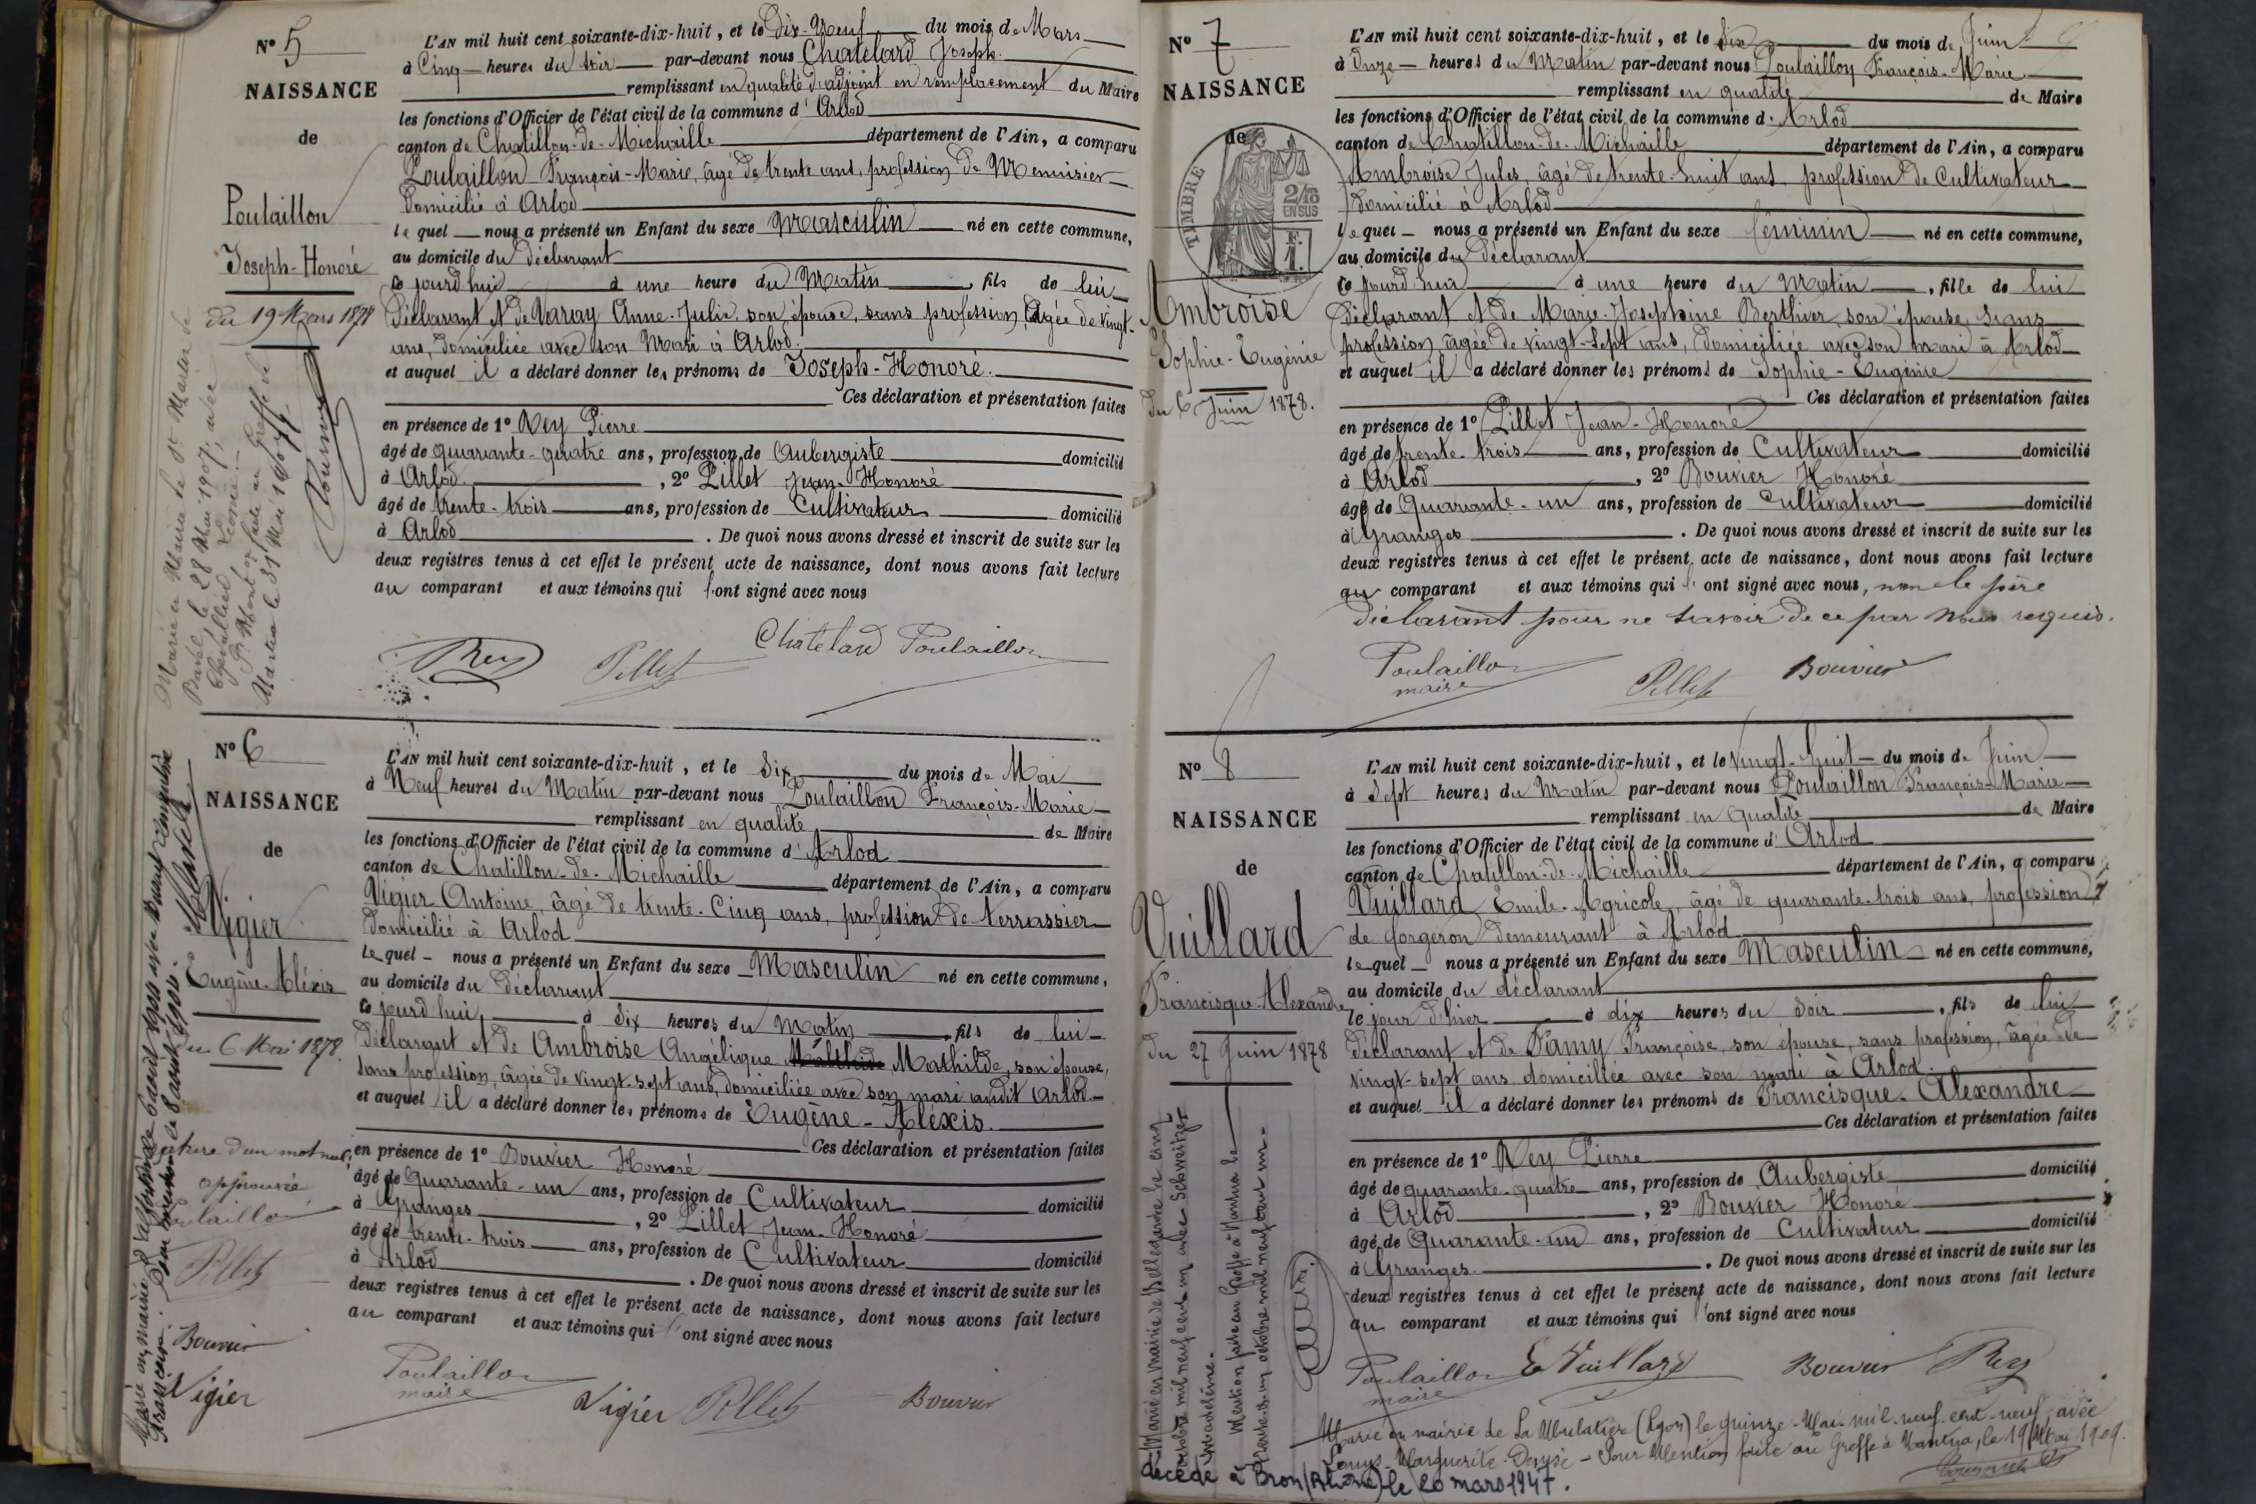 N° 5
NAISSANCE
de
Poulaillon
Joseph-Honoré
du 19 Mars 1878
Marié en Mairie de St Martin de
Bavel le 28 Mai 1907, avec
Léonie.
Pr Mention faite au Greffe de
Nantua le 31 Mai 1907
L'AN mil huit cent soixante-dix-huit, et le Dix-Neuf du mois de Mars
à Cinq heures du soir par-devant nous Chatelard Joseph
remplissant en qualité d'adjoint en remplacement du Maire
les fonctions d'Officier de l'état civil de la commune d'Arlod
canton de Chatillon-de-Michaille département de l'Ain, a comparu
Poulaillon François-Marie, âgé de trente ans, profession de Menuisier
domicilié à Arlod
lequel nous a présenté un Enfant du sexe Masculin né en cette commune,
au domicile du déclarant
ce jourd'hui à une heure du Matin, fils de lui
déclarant et de Varay Anne-Julie son épouse, sans profession, âgée de vingt-
ans, domiciliée avec son Mari à Arlod.
et auquel il a déclaré donner les prénoms de Joseph-Honoré.
Ces déclaration et présentation faites
en présence de 1° Rey Pierre
âgé de quarante-quatre ans, profession de Aubergiste domicilié
à Arlod, 2° Pillet Jean-Honoré
âgé de trente-trois ans, profession de Cultivateur domicilié
à Arlod. De quoi nous avons dressé et inscrit de suite sur les
deux registres tenus à cet effet le présent acte de naissance, dont nous avons fait lecture
au comparant et aux témoins qui l'ont signé avec nous
Chatelard Poulaillon
Rey Pillet
N° 6
NAISSANCE
de
Vigier
Eugène-Aléxis
du 6 Mai 1878.
Rature d'un mot nul,
approuvée
Poulaillon
Pillet
Bouvier
Vigier
L'AN mil huit cent soixante-dix-huit, et le Six du mois de Mai
à Neuf heures du Matin par-devant nous Poulaillon François-Marie
remplissant en qualité de Maire
les fonctions d'Officier de l'état civil de la commune d'Arlod
canton de Chatillon-de-Michaille département de l'Ain, a comparu
Vigier Antoine, âgé de trente-cinq ans, profession de terrassier
domicilié à Arlod
lequel nous a présenté un Enfant du sexe Masculin né en cette commune,
au domicile du déclarant
ce jourd'hui, à Six heures du Matin, fils de lui
déclarant et de Ambroise Angélique Mathilde, son épouse,
sans profession, âgée de vingt-sept ans, domiciliée avec son mari audit Arlod
et auquel il a déclaré donner les prénoms de Eugène-Aléxis.
Ces déclaration et présentation faites
en présence de 1° Bouvier Honoré
âgé de Quarante-un ans, profession de Cultivateur domicilié
à Granges, 2° Pillet Jean-Honoré
âgé de trente-trois ans, profession de Cultivateur domicilié
à Arlod. De quoi nous avons dressé et inscrit de suite sur les
deux registres tenus à cet effet le présent acte de naissance, dont nous avons fait lecture
au comparant et aux témoins qui l'ont signé avec nous
Poulaillon
maire
Vigier Pillet Bouvier
N° 7
NAISSANCE
de
TIMBRE
2/10
EN SUS
F.
1.
Ambroise
Sophie-Eugénie
du 6 Juin 1878.
L'AN mil huit cent soixante-dix-huit, et le Six du mois de Juin
à Onze heures du Matin par-devant nous Poulaillon François-Marie
remplissant en qualité de Maire
les fonctions d'Officier de l'état civil de la commune d'Arlod
canton de Chatillon-de-Michaille département de l'Ain, a comparu
Ambroise Jules, âgé de trente-huit ans, profession de Cultivateur
domicilié à Arlod
lequel nous a présenté un Enfant du sexe féminin né en cette commune,
au domicile du déclarant
ce jourd'hui à une heure du Matin, fille de lui
déclarant et de Marie-Joséphine Berthier, son épouse, sans
profession âgée de vingt-sept ans, domiciliée avec son mari à Arlod
et auquel il a déclaré donner les prénoms de Sophie-Eugénie
Ces déclaration et présentation faites
en présence de 1° Pillet Jean-Honoré
âgé de trente-trois ans, profession de Cultivateur domicilié
à Arlod, 2° Bouvier Honoré
âgé de Quarante-un ans, profession de Cultivateur domicilié
à Granges. De quoi nous avons dressé et inscrit de suite sur les
deux registres tenus à cet effet le présent acte de naissance, dont nous avons fait lecture
au comparant et aux témoins qui l'ont signé avec nous, non le père
déclarant pour ne savoir de ce par nous requis.
Poulaillon
maire
Pillet Bouvier
N° 8
NAISSANCE
de
Vuillard
Francisque-Alexandre
du 27 Juin 1878
Marié en mairie de Bellegarde le cinq
octobre mil neuf cent un avec Schweitzer
Madeleine.
Mention faite au Greffe à Nantua le
trente-un octobre mil neuf cent un.
L'AN mil huit cent soixante-dix-huit, et le Vingt-huit du mois de Juin
à Sept heures du Matin par-devant nous Poulaillon François-Marie
remplissant en qualité de Maire
les fonctions d'Officier de l'état civil de la commune d'Arlod
canton de Chatillon-de-Michaille département de l'Ain, a comparu
Vuillard Emile-Agricole, âgé de quarante-trois ans, profession
de forgeron demeurant à Arlod
lequel nous a présenté un Enfant du sexe Masculin né en cette commune,
au domicile du déclarant
le jour d'hier à dix heures du Soir, fils de lui
déclarant et de Famy Françoise, son épouse, sans profession, âgée de
vingt-sept ans domiciliée avec son mari à Arlod.
et auquel il a déclaré donner les prénoms de Francisque-Alexandre
Ces déclaration et présentation faites
en présence de 1° Rey Pierre
âgé de quarante-quatre ans, profession de Aubergiste domicilié
à Arlod, 2° Bouvier Honoré
âgé de Quarante-un ans, profession de Cultivateur domicilié
à Granges. De quoi nous avons dressé et inscrit de suite sur les
deux registres tenus à cet effet le présent acte de naissance, dont nous avons fait lecture
au comparant et aux témoins qui l'ont signé avec nous
Poulaillon E Vuillard Bouvier Rey
maire
Marié en mairie de La Mulatière (Lyon) le quinze Mai mil-neuf-cent-neuf, avec
Marguerite-Denyse - Pour Mention faite au Greffe à Nantua, le 19 Mai 1909.
décédé à Bron (Rhône) le 20 mars 1947.